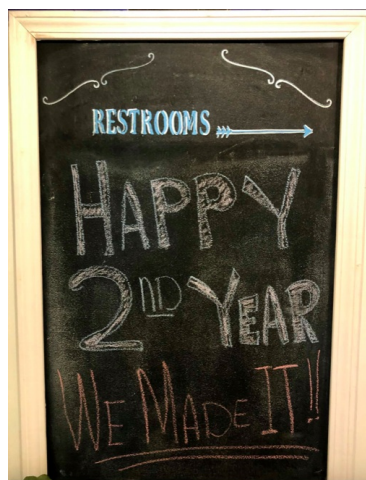 RESTROOMS
HAPPY
2ND YEAR
WE MADE IT!!